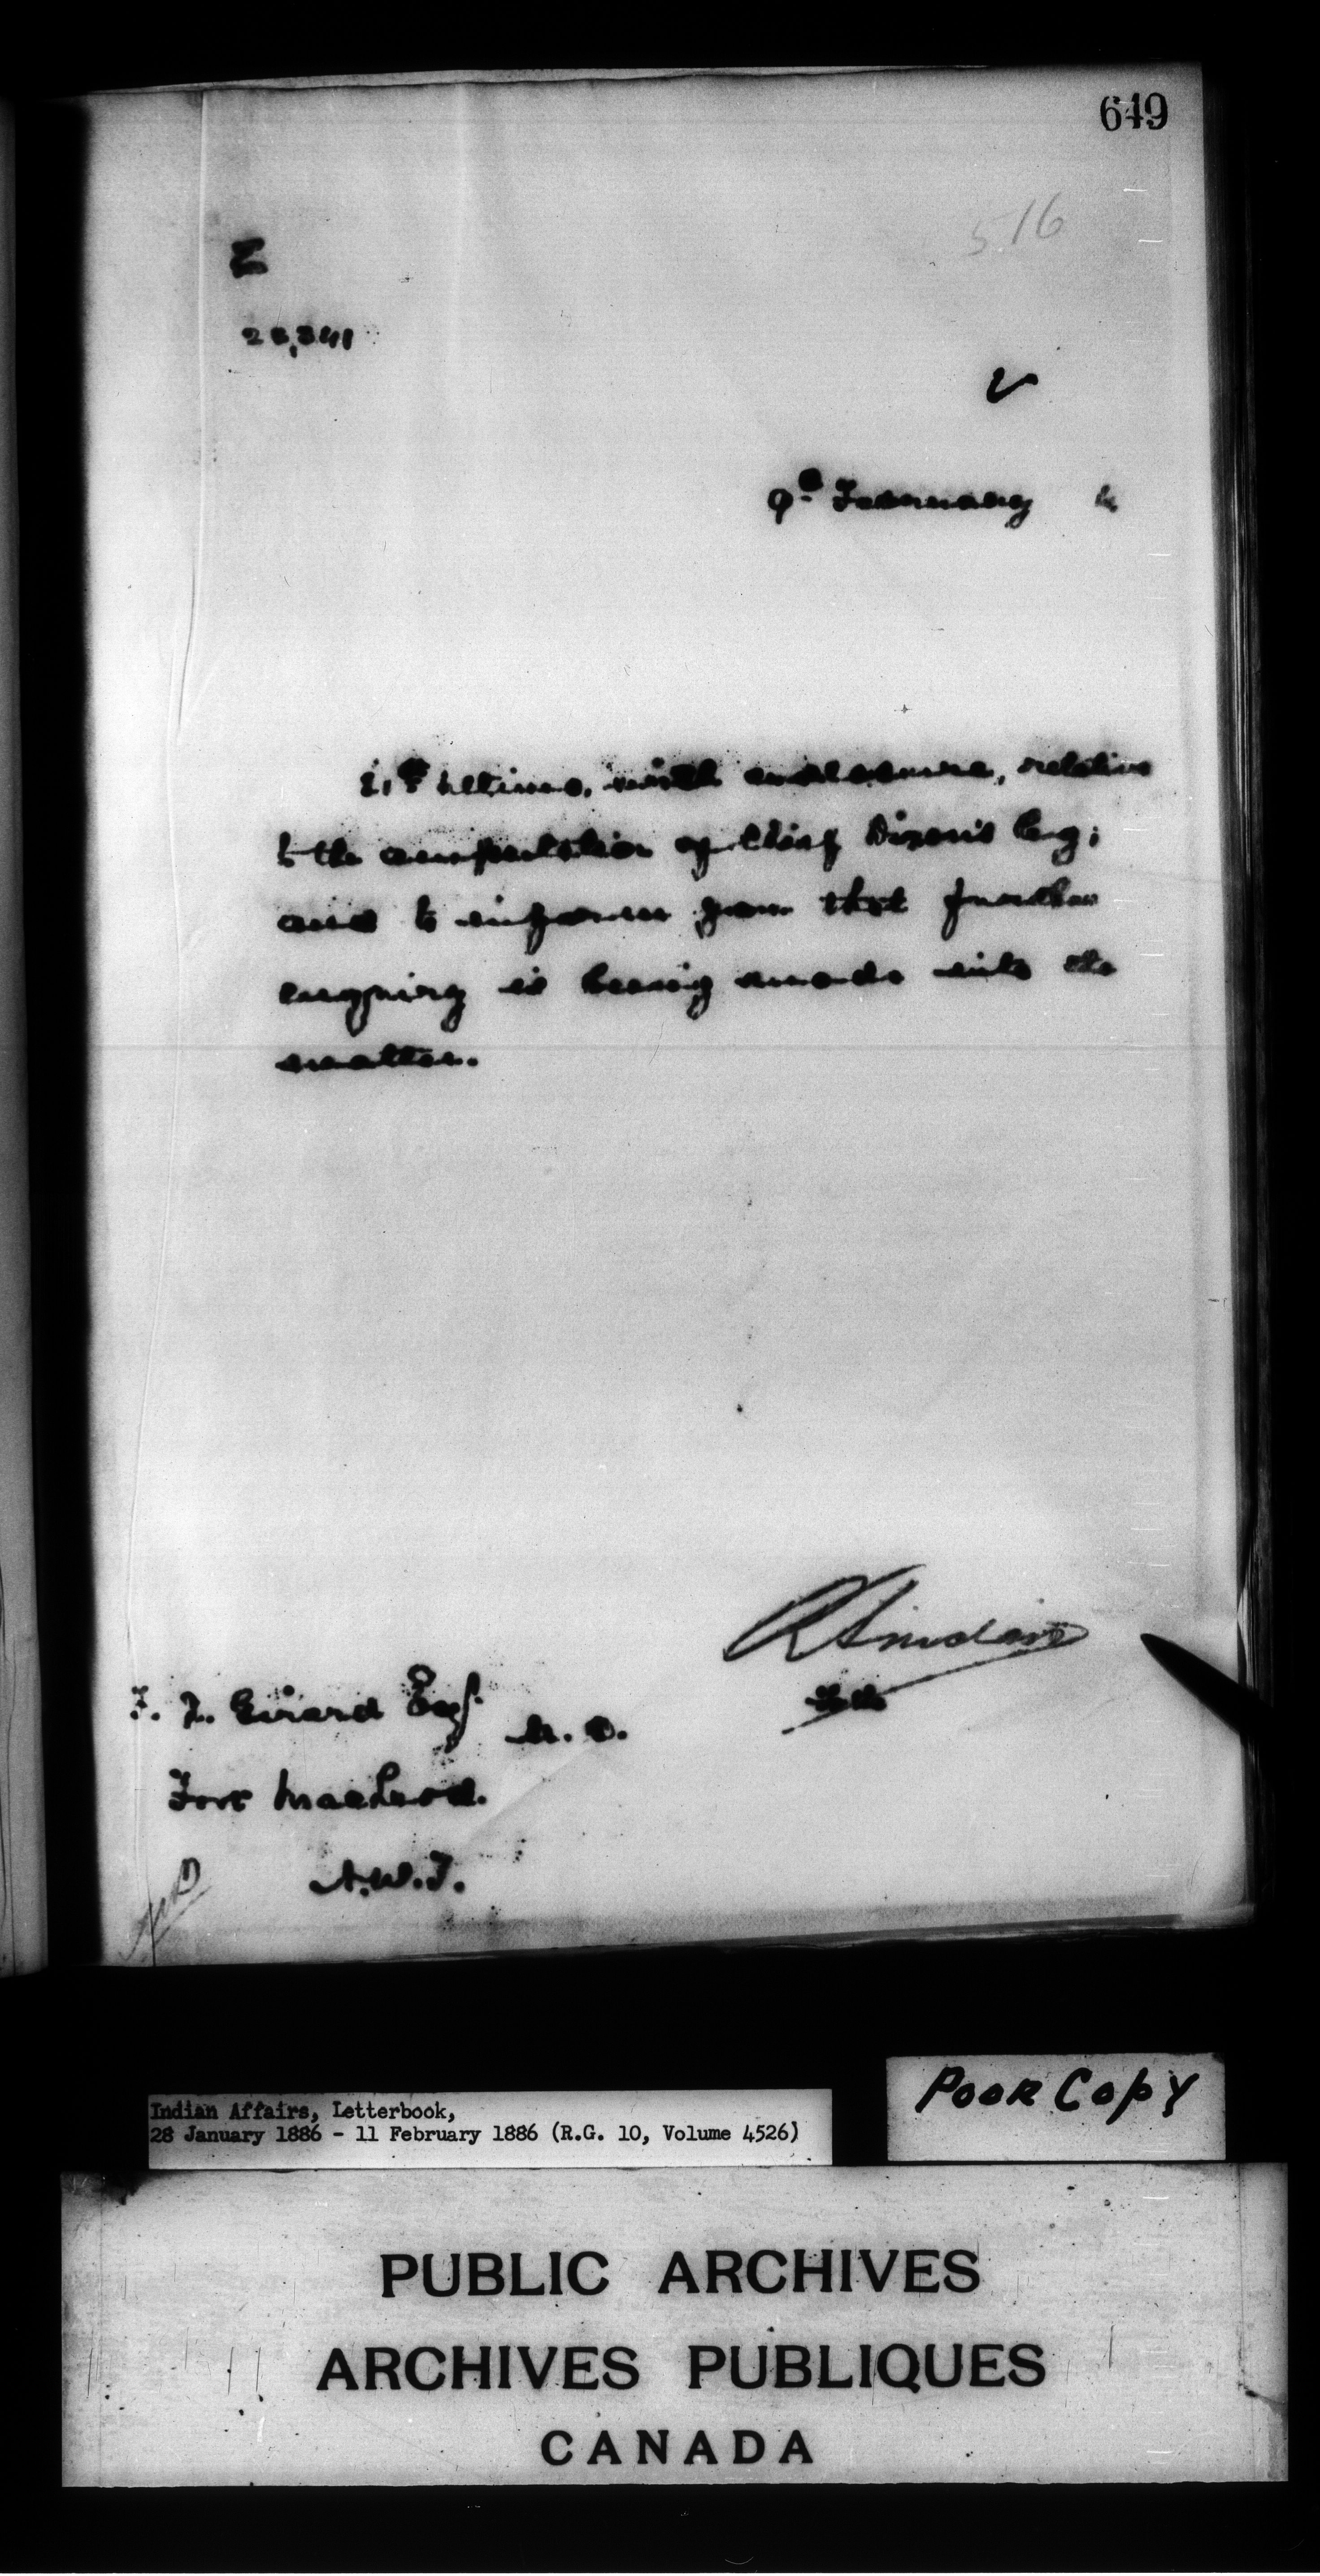 649
516
9th February
ultimo, with enclosure, relative
to the amputation of Dixon's leg;
and to inform you that further
enquiry is being made into the
matter.
R Sinclair
F. X. Girard Esq.
M. D.
Fort MacLeod.
N.W.T.
Poor Copy
Indian Affairs, Letterbook,
28 January 1886 - 11 February 1886 (R.G. 10, Volume 4526)
PUBLIC ARCHIVES
ARCHIVES PUBLIQUES
CANADA